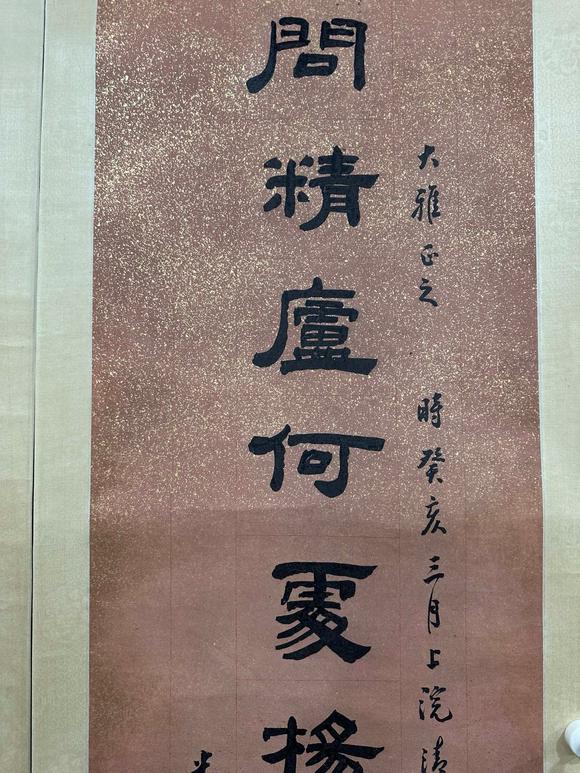 大雅正之 時癸亥三月上浣清
問精廬何處楊